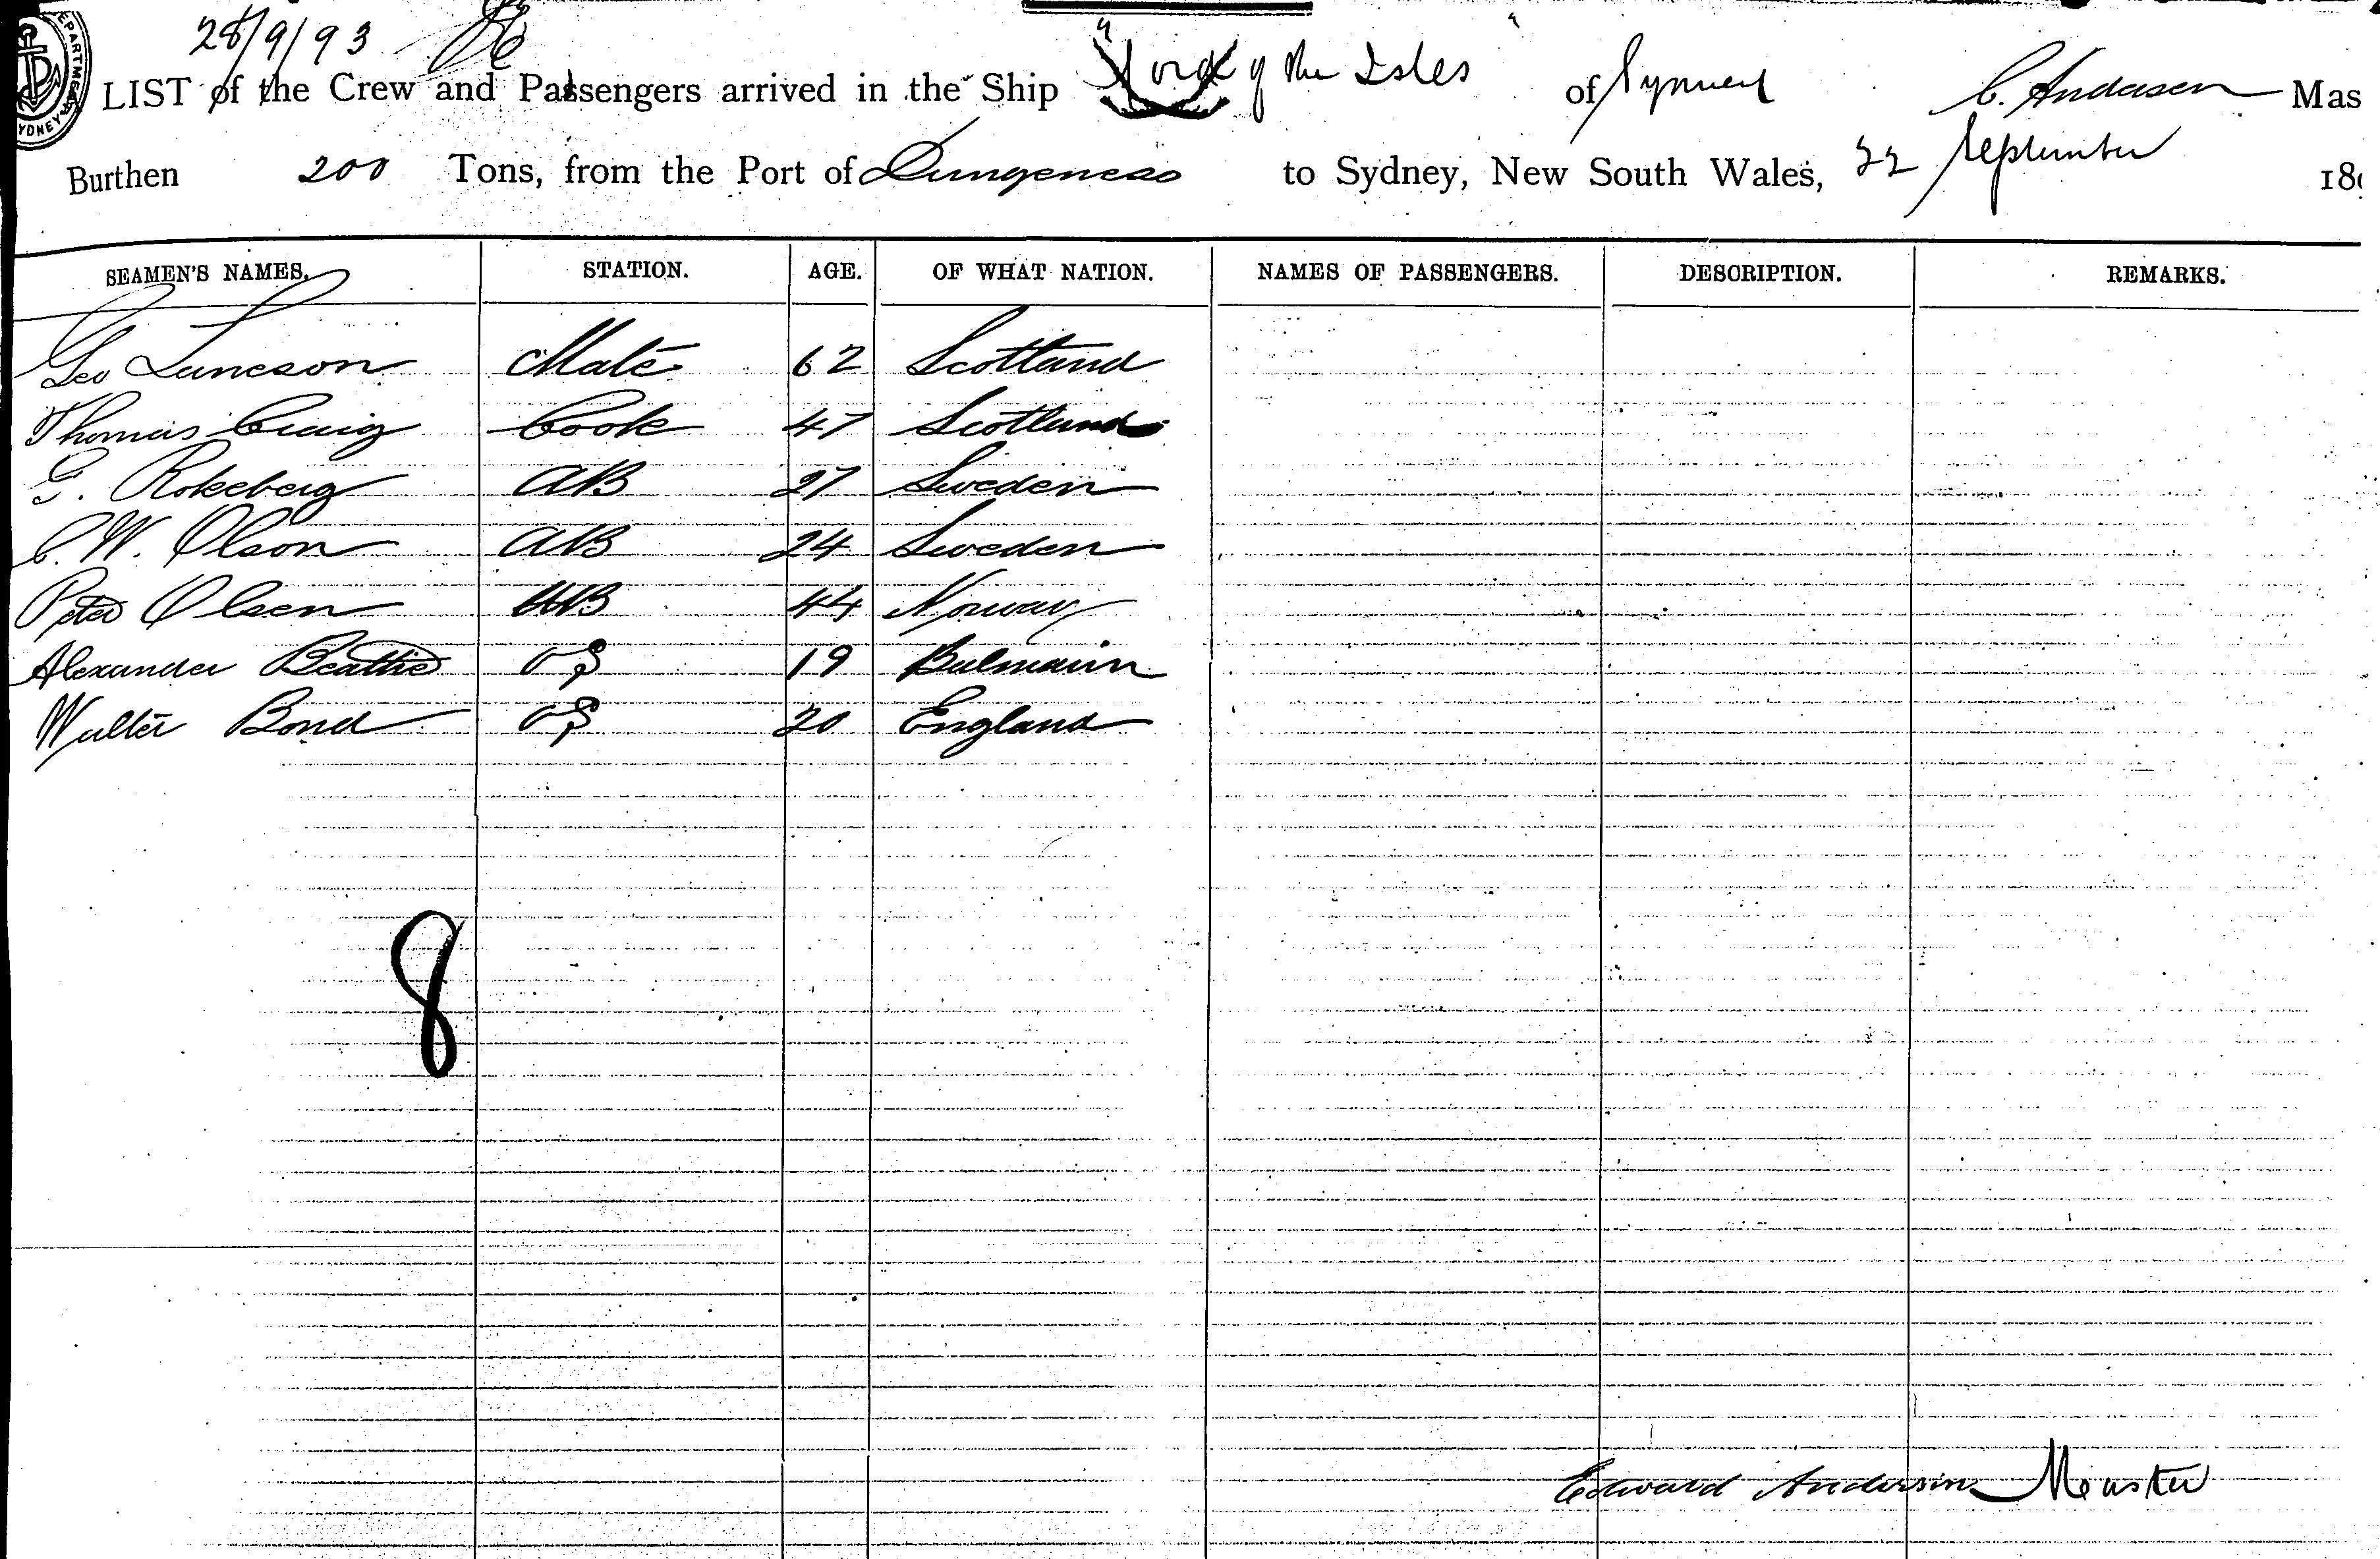 28/9/93
EPARTME
YDNEY
LIST of the Crew and Passengers arrived in the Ship "Lord of the Isles" of Sydney C. Andersen Mas
Burthen 200 Tons, from the Port of Dungeness to Sydney, New South Wales, 22 September 18
SEAMEN'S NAMES. STATION. AGE. OF WHAT NATION. NAMES OF PASSENGERS. DESCRIPTION. REMARKS.
Geo Mate 62 Scotland
Thomas Craig Cook 47 Scotland
G. Rokeberg AB 27 Sweden
C. W. Olson AB 24 Sweden
Peter Olsen AB 44 Norway
Alexander Beattie OS 19 Balmain
Walter Bond OS 20 England
8
Edward Anderson Master